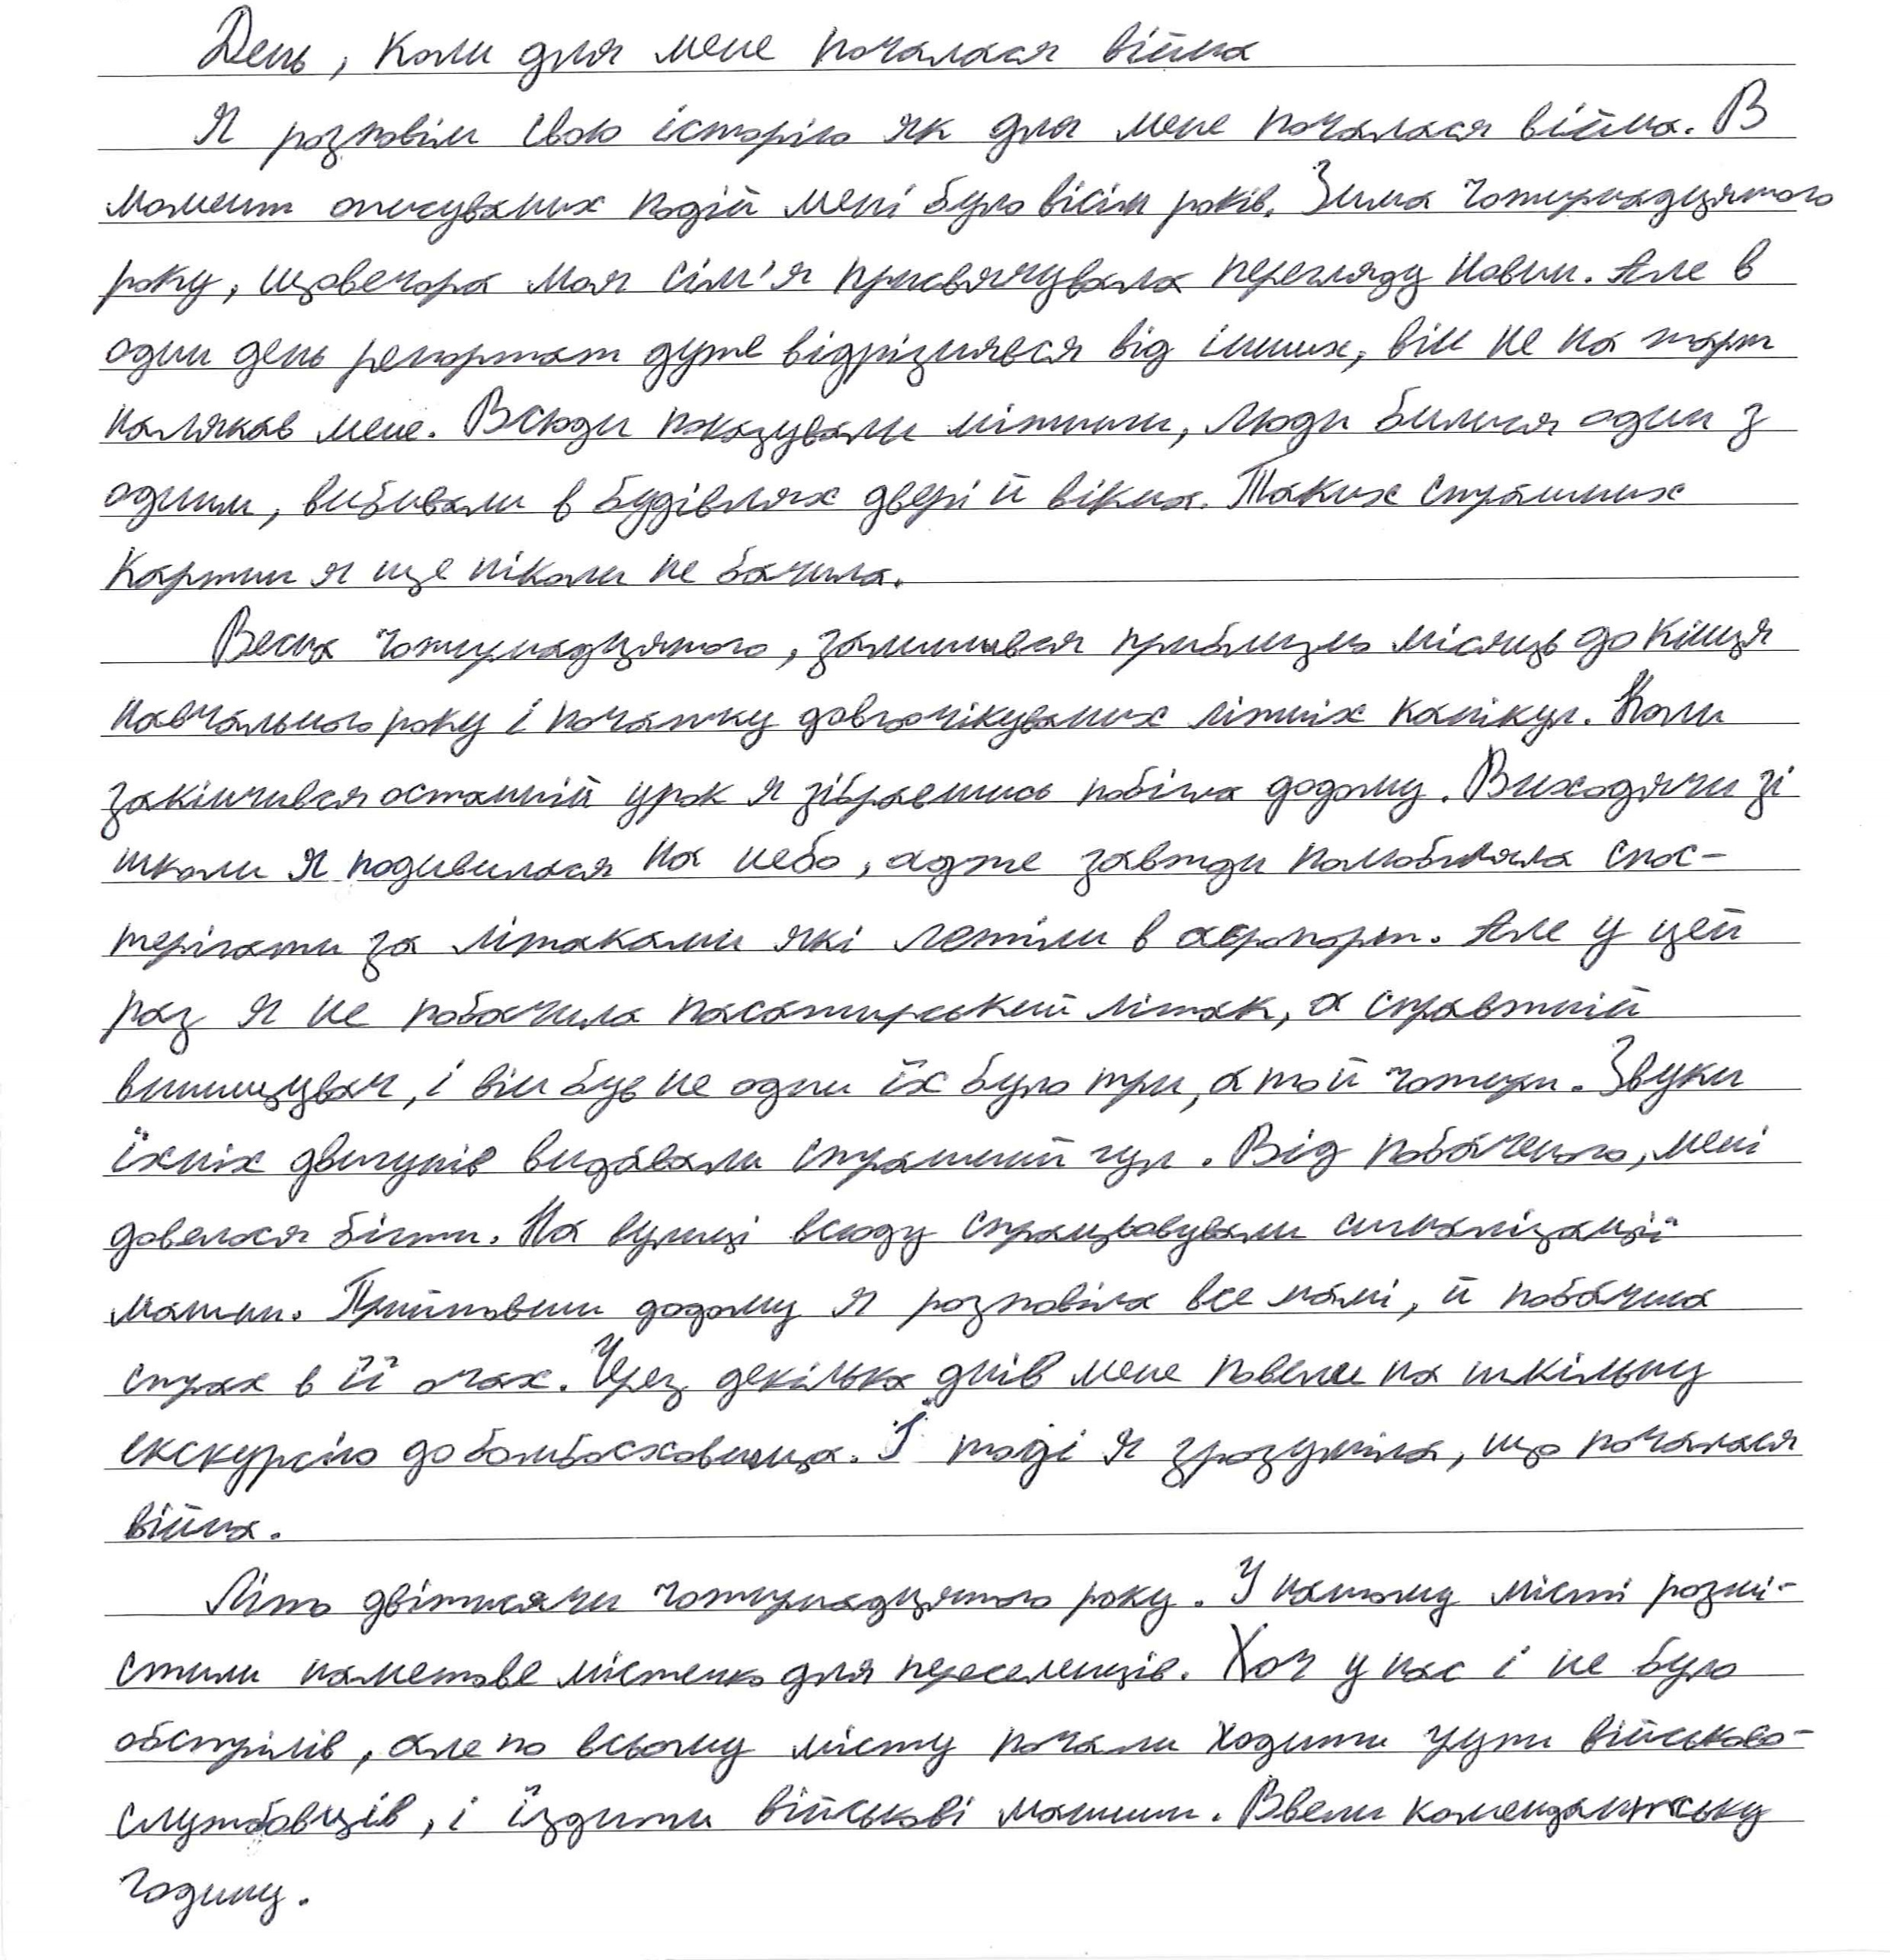 День, коли для мене почалася війна
Я розповім свою історію як для мене почалася війна. В
момент описуваних подій мені було вісім років. Зима чотирнадцятого
року, щовечора моя сім'я присвячувала перегляду новин. Але в
один день репортаж дуже відрізнявся від інших, він не на жарт
налякав мене. Всюди показували мітинги, люди билися один з
одним, вибивали в будівлях двері й вікна. Таких страшних
картин я ще ніколи не бачила.
Весна чотирнадцятого, залишився приблизно місяць до кінця
навчального року і початку довгоочікуваних літніх канікул. Коли
закінчився останній урок я зібравшись побігла додому. Виходячи зі
школи я подивилася на небо, адже завжди полюбляла спос-
терігати за літаками які летіли в аеропорт. Але у цей
раз я не побачила пасажирський літак, а справжній
винищувач, і він був не один їх було три, а то й чотири. Звуки
їхніх двигунів видавали страшний гул. Від побаченого, мені
довелося бігти. На вулиці всюду спрацьовували сигналізації
машин. Прийшовши додому я розповіла все мамі, й побачила
страх в її очах. Через декілька днів мене повели на шкільну
екскурсію до бомбосховища. І тоді я зрозуміла, що почалася
війна.
Літо двітисячи чотирнадцятого року. У нашому місті розмі-
стили наметове містечко для переселенців. Хоч у нас і не було
обстрілів, але по всьому місту почали ходити групи військово-
службовців, і їздити військові машини. Ввели комендантську
годину.